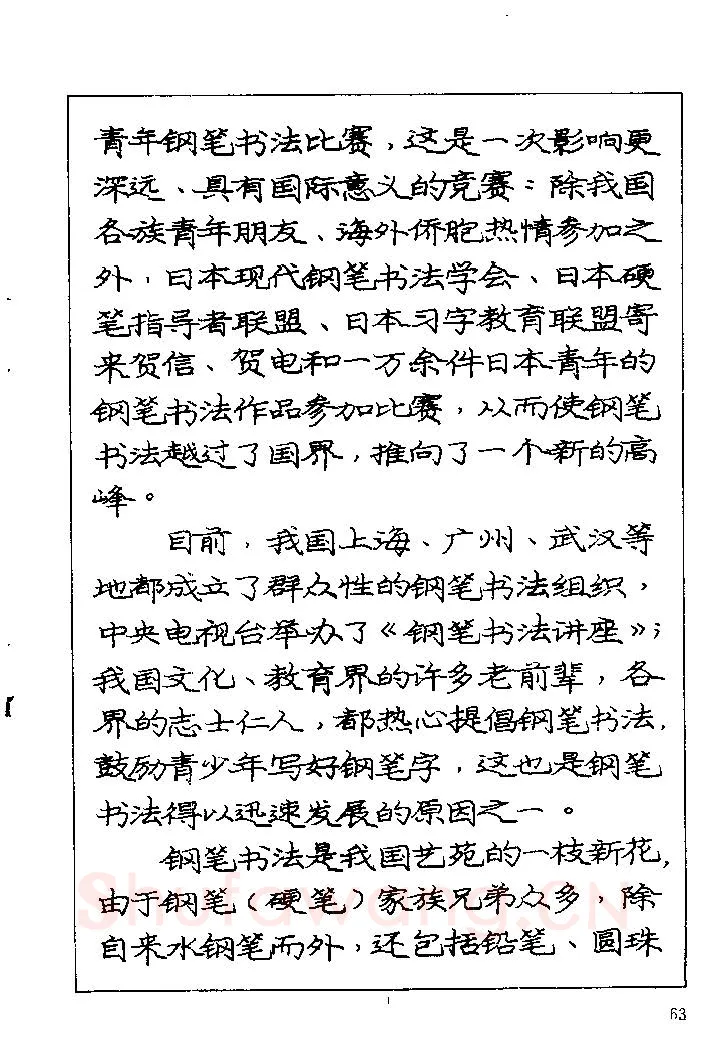 青年钢笔书法比赛，这是一次影响更
深远、具有国际意义的竞赛：除我国
各族青年朋友、海外侨胞热情参加之
外，日本现代钢笔书法学会、日本硬
笔指导者联盟、日本习字教育联盟寄
来贺信、贺电和一万余件日本青年的
钢笔书法作品参加比赛，从而使钢笔
书法越过了国界，推向了一个新的高
峰。
目前，我国上海、广州、武汉等
地都成立了群众性的钢笔书法组织，
中央电视台举办了《钢笔书法讲座》；
我国文化、教育界的许多老前辈，各
界的志士仁人，都热心提倡钢笔书法，
鼓励青少年写好钢笔字，这也是钢笔
书法得以迅速发展的原因之一。
钢笔书法是我国艺苑的一枝新花，
由于钢笔（硬笔）家族兄弟众多，除
自来水钢笔而外，还包括铅笔、圆珠
Shufawang.CN
63